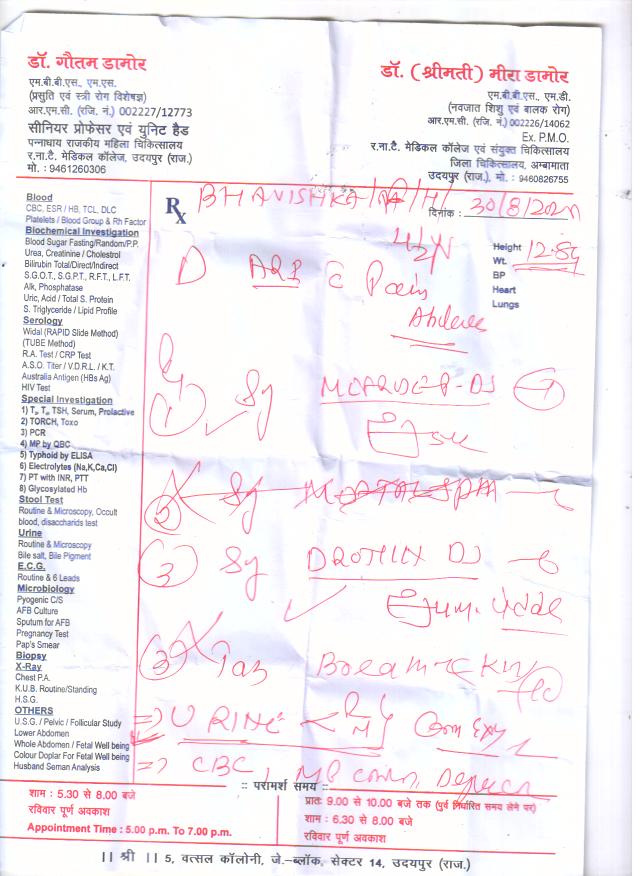 डॉ. गौतम डामोर
एम.बी.बी.एस., एम.एस.
(प्रसुति एवं स्त्री रोग विशेषज्ञ)
आर.एम.सी. (रजि. नं.) 002227/12773
सीनियर प्रोफेसर एवं युनिट हैड
पन्नाधाय राजकीय महिला चिकित्सालय
र.ना.टै. मेडिकल कॉलेज, उदयपुर (राज.)
मो. : 9461260306
डॉ. (श्रीमती) मीरा डामोर
एम.बी.बी.एस., एम.डी.
(नवजात शिशु एवं बालक रोग)
आर.एम.सी. (रजि. नं.) 002226/14062
Ex. P.M.O.
र.ना.टै. मेडिकल कॉलेज एवं संयुक्त चिकित्सालय
जिला चिकित्सालय, अम्बामाता
उदयपुर (राज.), मो. : 9460826755
Blood
CBC, ESR / HB, TCL, DLC
Platelets / Blood Group & Rh Factor
Biochemical Investigation
Blood Sugar Fasting/Random/P.P.
Urea, Creatinine / Cholestrol
Bilirubin Total/Direct/Indirect
S.G.O.T., S.G.P.T., R.F.T., L.F.T.
Alk, Phosphatase
Uric, Acid / Total S. Protein
S. Triglyceride / Lipid Profile
Serology
Widal (RAPID Slide Method)
(TUBE Method)
R.A. Test / CRP Test
A.S.O. Titer / V.D.R.L. / K.T.
Australia Antigen (HBs Ag)
HIV Test
Special Investigation
1) T₃, T₄, TSH, Serum, Prolactive
2) TORCH, Toxo
3) PCR
4) MP by QBC
5) Typhoid by ELISA
6) Electrolytes (Na,K,Ca,Cl)
7) PT with INR, PTT
8) Glycosylated Hb
Stool Test
Routine & Microscopy, Occult
blood, disaccharids test
Urine
Routine & Microscopy
Bile salt, Bile Pigment
E.C.G.
Routine & 6 Leads
Microbiology
Pyogenic C/S
AFB Culture
Sputum for AFB
Pregnancy Test
Pap's Smear
Biopsy
X-Ray
Chest P.A.
K.U.B. Routine/Standing
H.S.G.
OTHERS
U.S.G. / Pelvic / Follicular Study
Lower Abdomen
Whole Abdomen / Fetal Well being
Colour Doplar For Fetal Well being
Husband Seman Analysis
Rx BHANISHKA
दिनांक : 30/8/202
Height
Wt.
BP
Heart
Lungs
Pain
1 Sy
3 Sy DROTHIN DS
Tab
URINE
CBC, MP
:: परामर्श समय ::
शाम : 5.30 से 8.00 बजे
रविवार पूर्ण अवकाश
Appointment Time : 5.00 p.m. To 7.00 p.m.
प्रातः 9.00 से 10.00 बजे तक (पुर्व निर्धारित समय लेने पर)
शाम : 6.30 से 8.00 बजे
रविवार पूर्ण अवकाश
|| श्री || 5, वत्सल कॉलोनी, जे.–ब्लॉक, सेक्टर 14, उदयपुर (राज.)